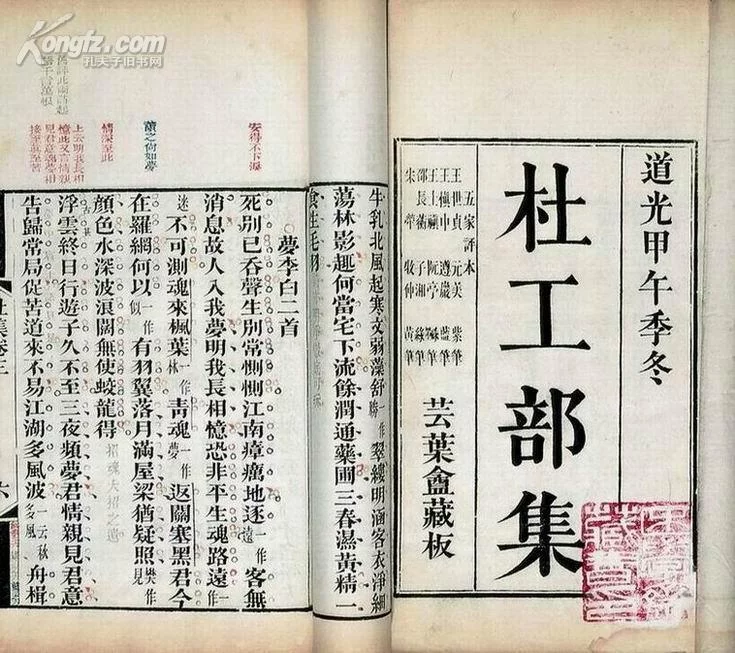 Kongfz.com
孔夫子旧书网
道光甲午季冬
杜工部集
芸葉盦藏板
五家評本
王世貞 元美 紫筆
王慎中 遵巖 藍筆
王士禛 阮亭
邵長蘅 子湘 綠筆
宋犖 牧仲 黃筆
牛乳北風起寒文弱藻舒勝一作翠縷明涵客衣淨細
蕩林影趣何當宅下流餘潤通藥圃三春濕黃精一
食生毛羽
夢李白二首
死別已吞聲生別常惻惻江南瘴癘地逐一作遠客無
消息故人入我夢明我長相憶恐非平生魂路遠一作
迷不可測魂來楓葉一作林青魂一作夢返關塞黑君今
在羅網何以一作似有羽翼落月滿屋梁猶疑照一作見
顏色水深波浪闊無使蛟龍得
招魂大招之遺
浮雲終日行遊子久不至三夜頻夢君情親見君意
告歸常局促苦道來不易江湖多風波一云秋多風舟楫
安得不下淚
讀之尚如夢
情深至此
上云明我長相
憶此又言情親
見君意
接至真至苦